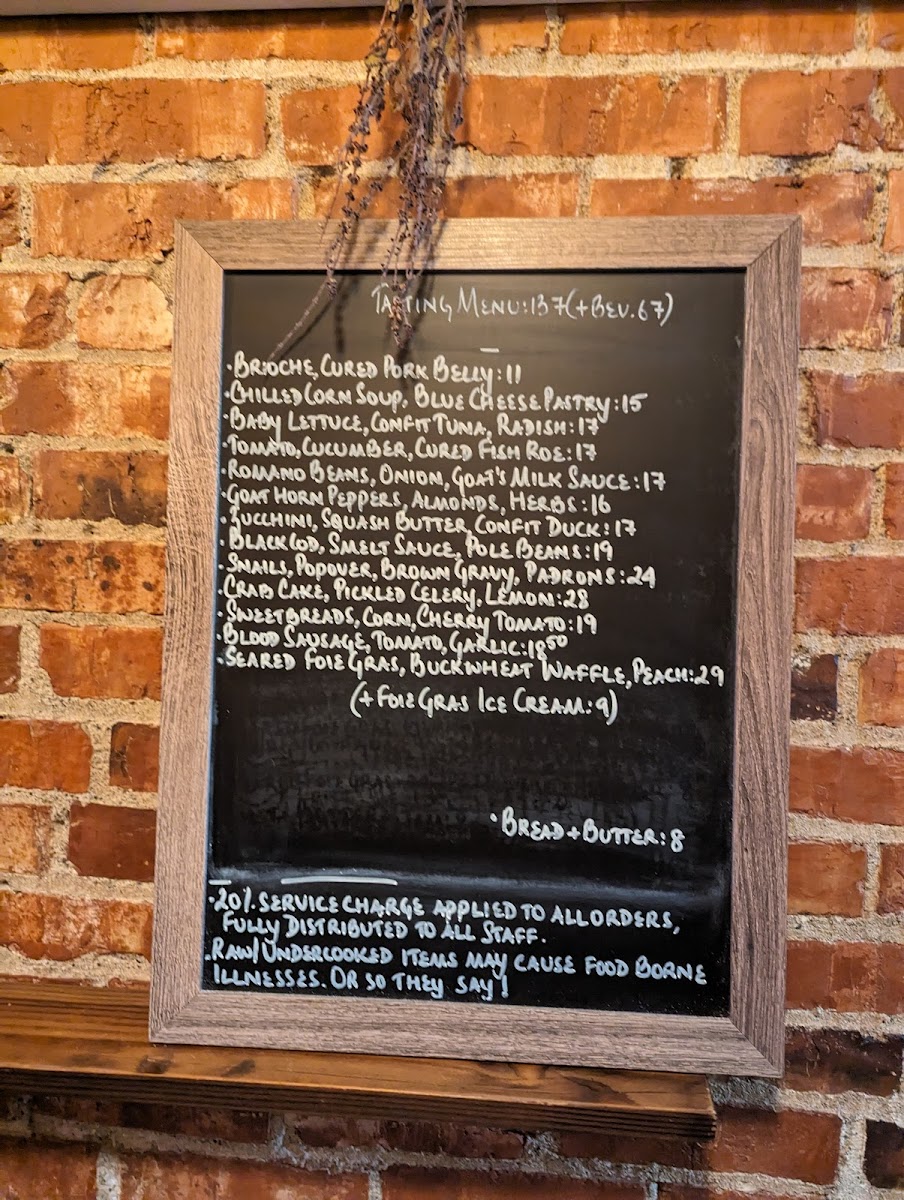 TASTING MENU:137(+BEV.67)
·BRIOCHE, CURED PORK BELLY:11
·CHILLED CORN SOUP, BLUE CHEESE PASTRY:15
·BABY LETTUCE, CONFIT TUNA, RADISH:17
·TOMATO, CUCUMBER, CURED FISH ROE:17
·ROMANO BEANS, ONION, GOAT'S MILK SAUCE:17
·GOAT HORN PEPPERS, ALMONDS, HERBS:16
·ZUCCHINI, SQUASH BUTTER, CONFIT DUCK:17
·BLACK COD, SMELT SAUCE, POLE BEANS:19
·SNAILS, POPOVER, BROWN GRAVY, PADRONS:24
·CRAB CAKE, PICKLED CELERY, LEMON:28
·SWEETBREADS, CORN, CHERRY TOMATO:19
·BLOOD SAUSAGE, TOMATO, GARLIC:18⁵⁰
·SEARED FOIE GRAS, BUCKWHEAT WAFFLE, PEACH:29
(+FOIE GRAS ICE CREAM:9)
·BREAD+BUTTER:8
·20% SERVICE CHARGE APPLIED TO ALL ORDERS,
FULLY DISTRIBUTED TO ALL STAFF.
·RAW/UNDERCOOKED ITEMS MAY CAUSE FOOD BORNE
ILLNESSES. OR SO THEY SAY!